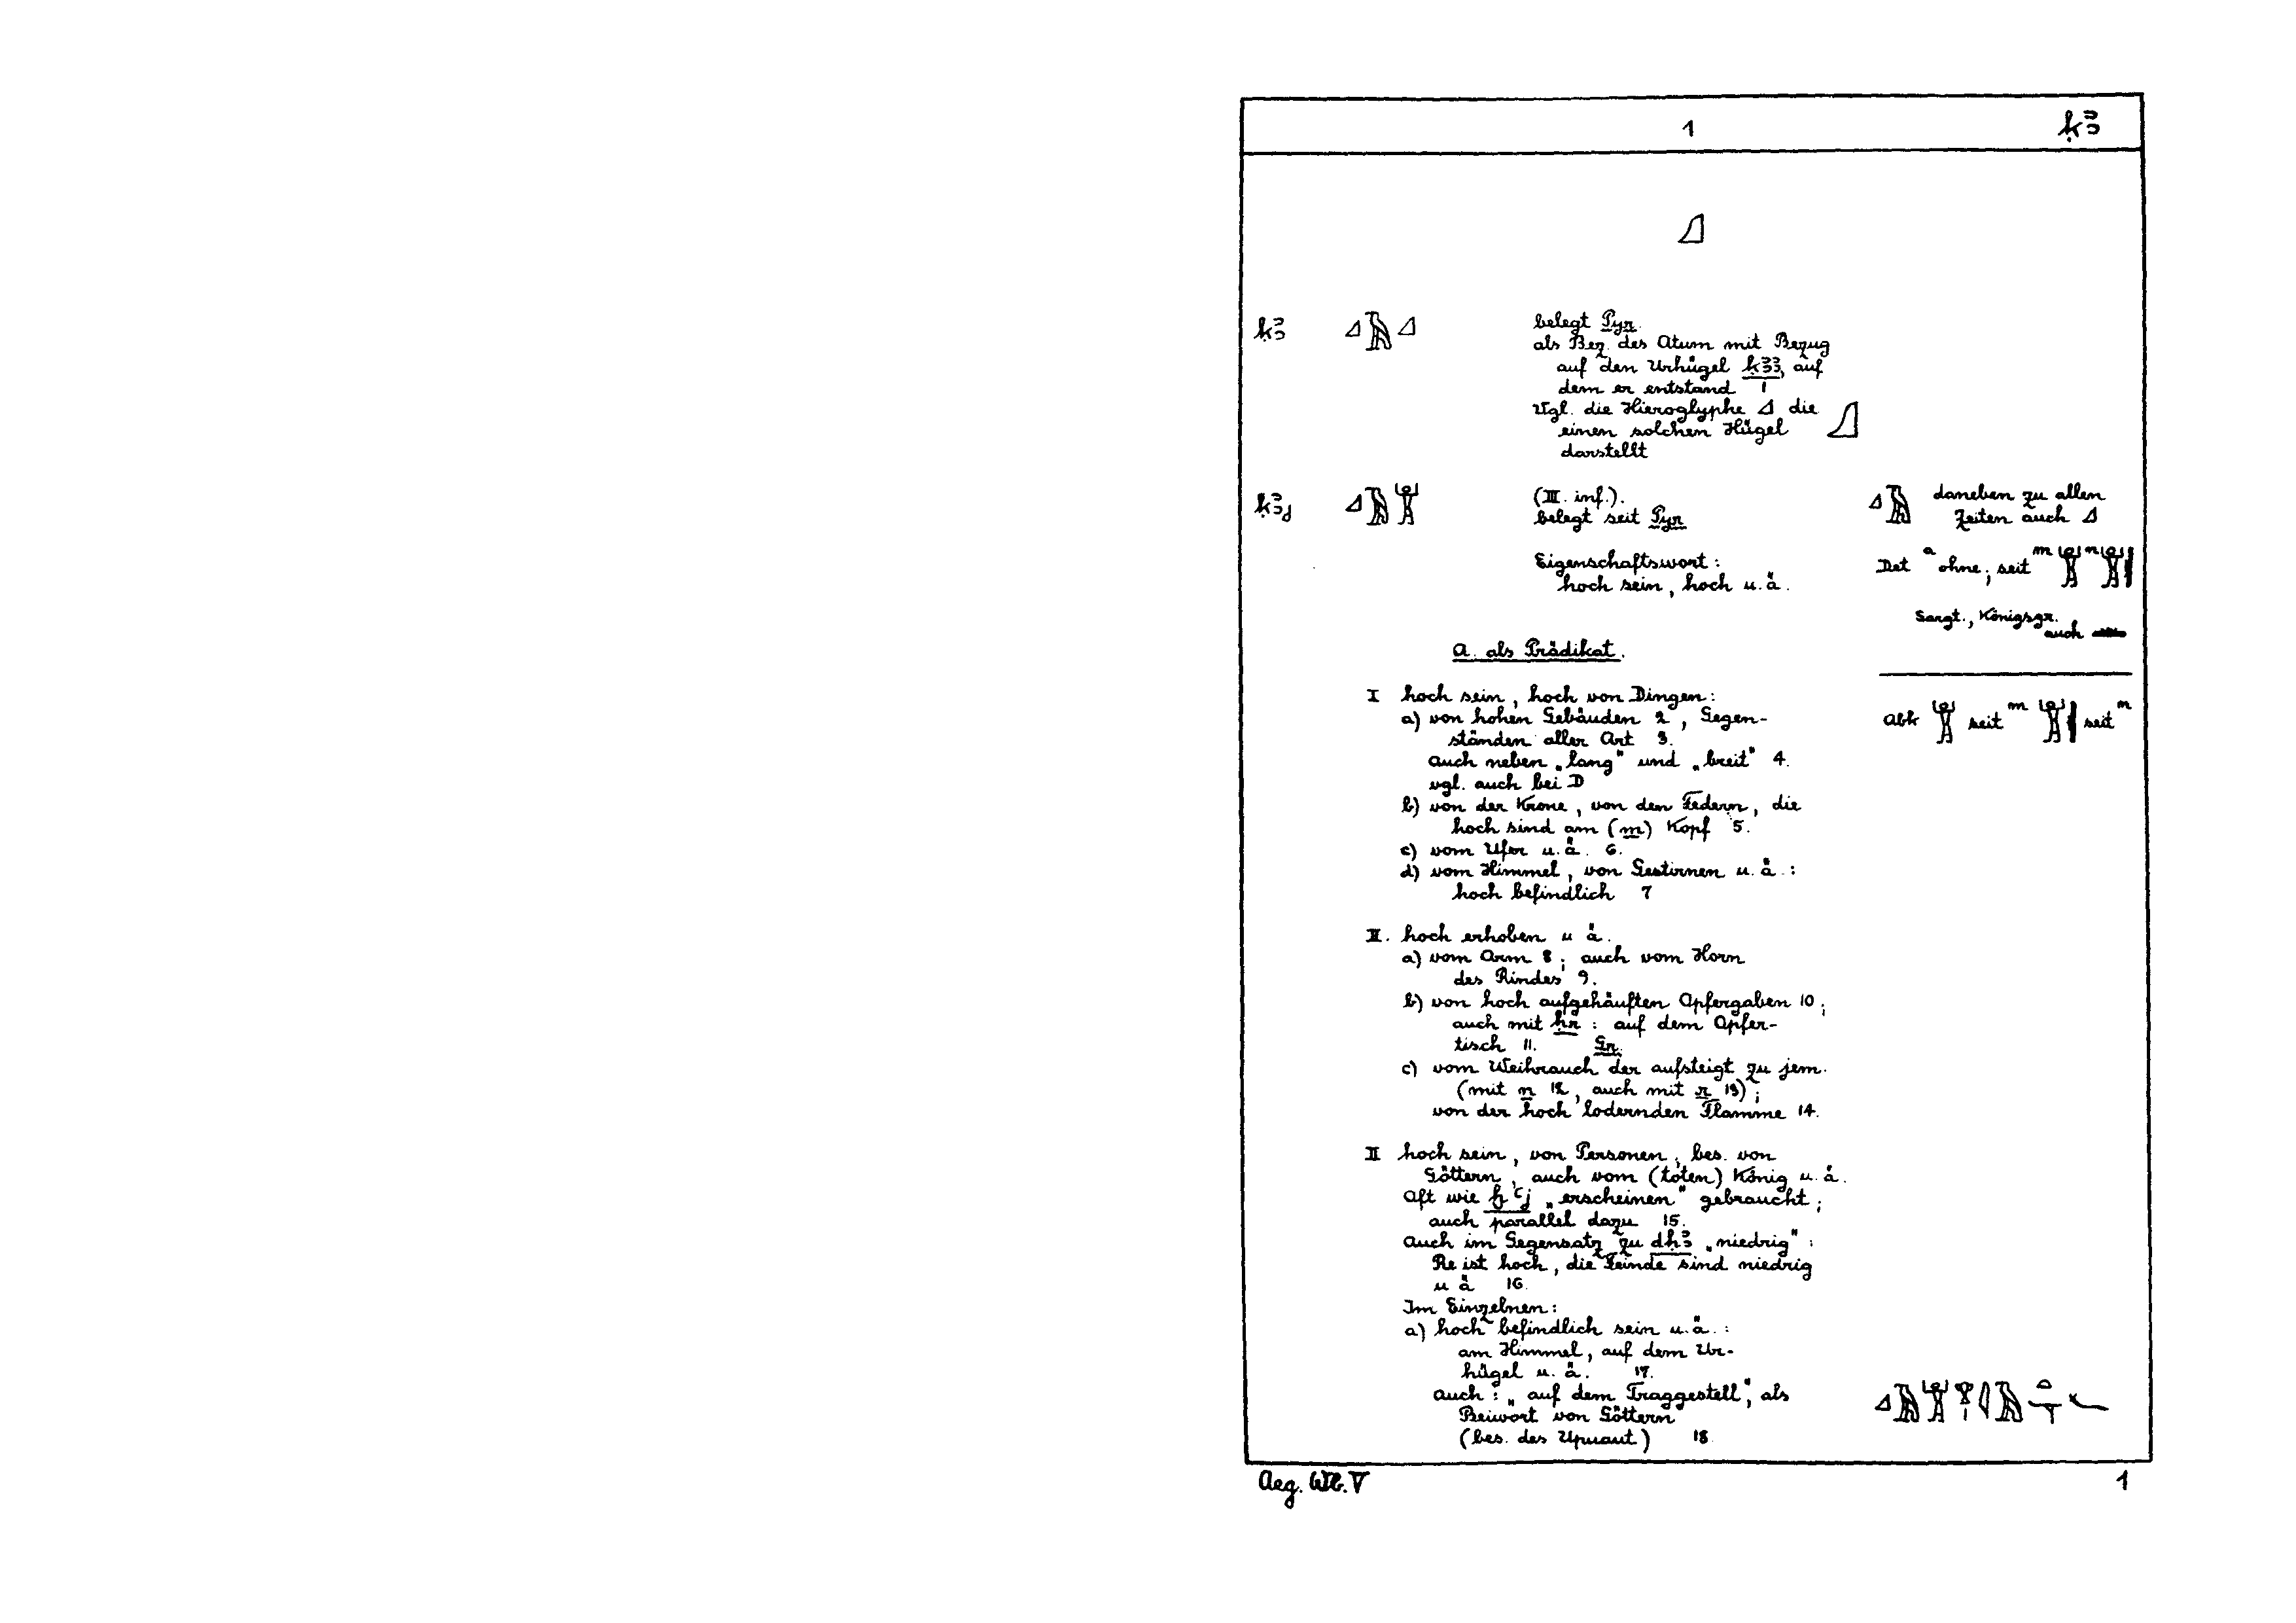 1 ḳꜣ
ḳꜣ belegt Pyr.
als Bez. des Atum mit Bezug
auf den Urhügel ḳꜣꜣ, auf
dem er entstand 1
Vgl. die Hieroglyphe 𓈎 die
einen solchen Hügel
darstellt
ḳꜣj (III. inf.). daneben zu allen
belegt seit Pyr Zeiten auch 𓈎
Eigenschaftswort: Det a ohne; seit m n
hoch sein, hoch u.ä.
Sargt., Königsgr.
auch
A. als Prädikat.
I hoch sein, hoch von Dingen:
a) von hohen Gebäuden 2, Gegen- Abk seit m seit n
ständen aller Art 3.
Auch neben „lang" und „breit" 4.
vgl. auch bei D
b) von der Krone, von den Federn, die
hoch sind am (m) Kopf 5.
c) vom Ufer u.ä. 6.
d) vom Himmel, von Gestirnen u.ä.:
hoch befindlich 7
II. hoch erhoben u ä.
a) vom Arm 8; auch vom Horn
des Rindes 9.
b) von hoch aufgehäuften Opfergaben 10;
auch mit ḥr: auf dem Opfer-
tisch 11. Gr.
c) vom Weihrauch der aufsteigt zu jem.
(mit n 12, auch mit r 13);
von der hoch lodernden Flamme 14.
II hoch sein, von Personen, bes. von
Göttern, auch vom (toten) König u.ä.
Oft wie ḫꜥj „erscheinen" gebraucht;
auch parallel dazu 15.
Auch im Gegensatz zu dhꜣ „niedrig":
Re ist hoch, die Feinde sind niedrig
u ä 16.
Im Einzelnen:
a) hoch befindlich sein u.ä.:
am Himmel, auf dem Ur-
hügel u.ä. 17.
auch: „auf dem Traggestell", als
Beiwort von Göttern
(bes. des Upuaut) 18.
Aeg. Wb. V 1